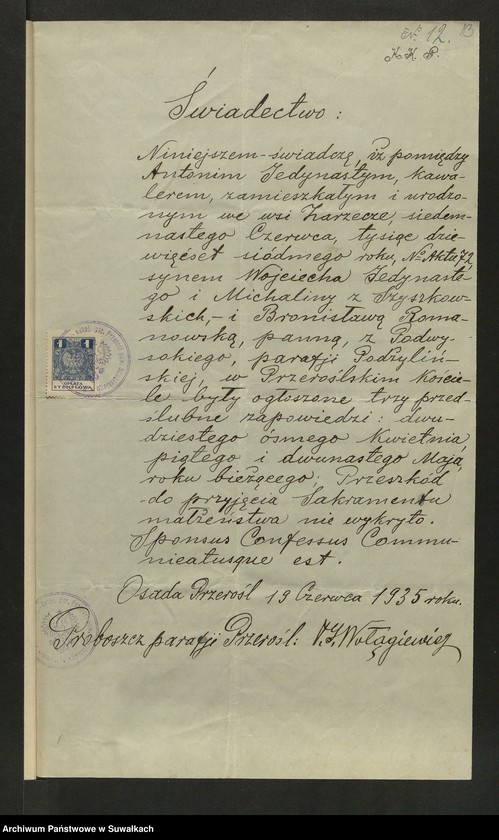 № 12. 13
K. K. P.
Świadectwo:
Niniejszem świadczę, iż pomiędzy
Antonim Jedynastym, kawa-
lerem, zamieszkałym i urodzo-
nym we wsi Zarzecze, siedem-
nastego Czerwca, tysiąc dzie-
więćset siódmego roku, № Aktu 72,
synem Wojciecha Jedynaste-
go i Michaliny z Szyszkow-
skich, - i Bronisławą Roma-
nowską, panną, z Podwy-
sokiego, parafji Podzyliń-
skiej, w Przeroślskim Koście-
le były ogłoszone trzy przed-
ślubne zapowiedzi: dwu-
dziestego ósmego Kwietnia
piątego i dwunastego Maja,
roku bieżącego; Przeszkód
do przyjęcia Sakramentu
małżeństwa nie wykryto.
Sponsus Confessus Commu-
nicatusque est.
Osada Przerośl 19 Czerwca 1935 roku.
Proboszcz parafji Przerośl: V. J. Wołągiewicz
1 1
OPŁATA
STEMPLOWA
Archiwum Państwowe w Suwałkach